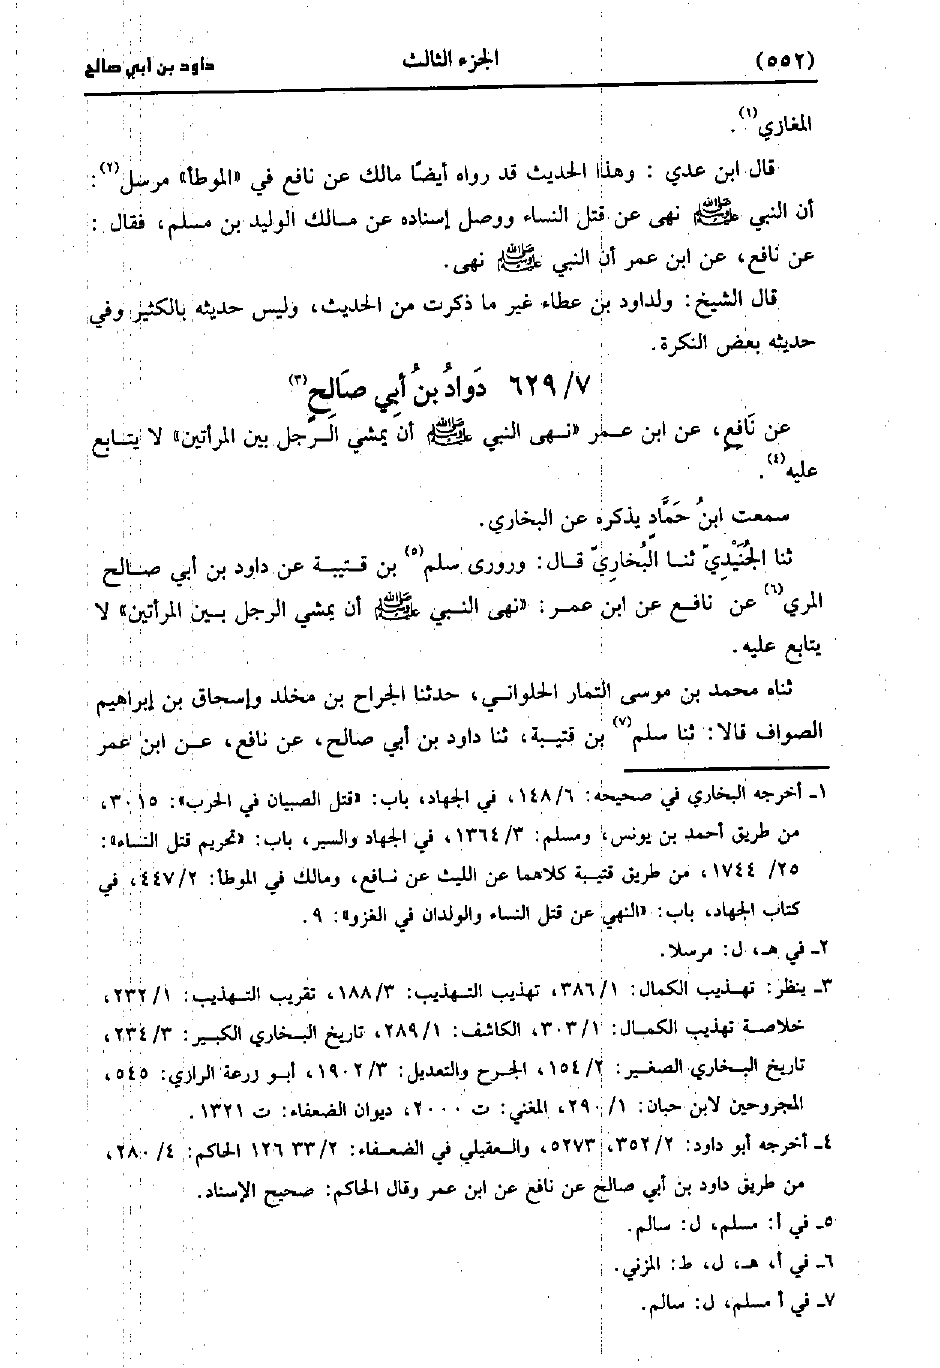 (٥٥٢) الجزء الثالث داود بن أبي صالح
المغازي(١).
قال ابن عدي : وهذا الحديث قد رواه أيضًا مالك عن نافع في «الموطأ» مرسل(٢):
أن النبي ﷺ نهى عن قتل النساء ووصل إسناده عن مالك الوليد بن مسلم، فقال :
عن نافع، عن ابن عمر أن النبي ﷺ نهى.
قال الشيخ: ولداود بن عطاء غير ما ذكرت من الحديث، وليس حديثه بالكثير وفي
حديثه بعض النكرة.
٦٢٩/٧ دَوادُ بنُ أَبِي صَالِحٍ(٣)
عن نَافِعٍ، عن ابن عمر «نهى النبي ﷺ أن يمشي الرجل بين المرأتين» لا يتابع
عليه(٤).
سمعت ابنُ حَمَّادٍ يذكره عن البخاري.
ثنا الجُنَيْدِيّ ثنا البُخارِيّ قال: ورورى سلم(٥) بن قتيبة عن داود بن أبي صالح
المري(٦) عن نافع عن ابن عمر: «نهى النبي ﷺ أن يمشي الرجل بين المرأتين» لا
يتابع عليه.
ثناه محمد بن موسى التمار الحلواني، حدثنا الجراح بن مخلد وإسحاق بن إبراهيم
الصواف قالا: ثنا سلم(٧) بن قتيبة، ثنا داود بن أبي صالح، عن نافع، عن ابن عمر
١ـ أخرجه البخاري في صحيحه: ١٤٨/٦، في الجهاد، باب: «قتل الصبيان في الحرب»: ٣٠١٥،
من طريق أحمد بن يونس، ومسلم: ١٣٦٤/٣، في الجهاد والسير، باب: «تحريم قتل النساء»:
٢٥/ ١٧٤٤، من طريق قتيبة كلاهما عن الليث عن نافع، ومالك في الموطأ: ٤٤٧/٢، في
كتاب الجهاد، باب: «النهي عن قتل النساء والولدان في الغزو»: ٩.
٢ـ في هـ، ل: مرسلا.
٣ـ ينظر: تهذيب الكمال: ٣٨٦/١، تهذيب التهذيب: ١٨٨/٣، تقريب التهذيب: ٢٣٢/١،
خلاصة تهذيب الكمال: ٣٠٣/١، الكاشف: ٢٨٩/١، تاريخ البخاري الكبير: ٢٣٤/٣،
تاريخ البخاري الصغير: ١٥٤/٢، الجرح والتعديل: ١٩٠٢/٣، أبو زرعة الرازي: ٥٤٥،
المجروحين لابن حبان: ٢٩٠/١، المغني: ت ٢٠٠٠، ديوان الضعفاء: ت ١٣٢١.
٤ـ أخرجه أبو داود: ٣٥٢/٢، ٥٢٧٣، والعقيلي في الضعفاء: ٣٣/٢ ١٢٦ الحاكم: ٢٨٠/٤،
من طريق داود بن أبي صالح عن نافع عن ابن عمر وقال الحاكم: صحيح الإسناد.
٥ـ في أ: مسلم، ل: سالم.
٦ـ في أ، هـ، ل، ط: المزني.
٧ـ في أ مسلم، ل: سالم.